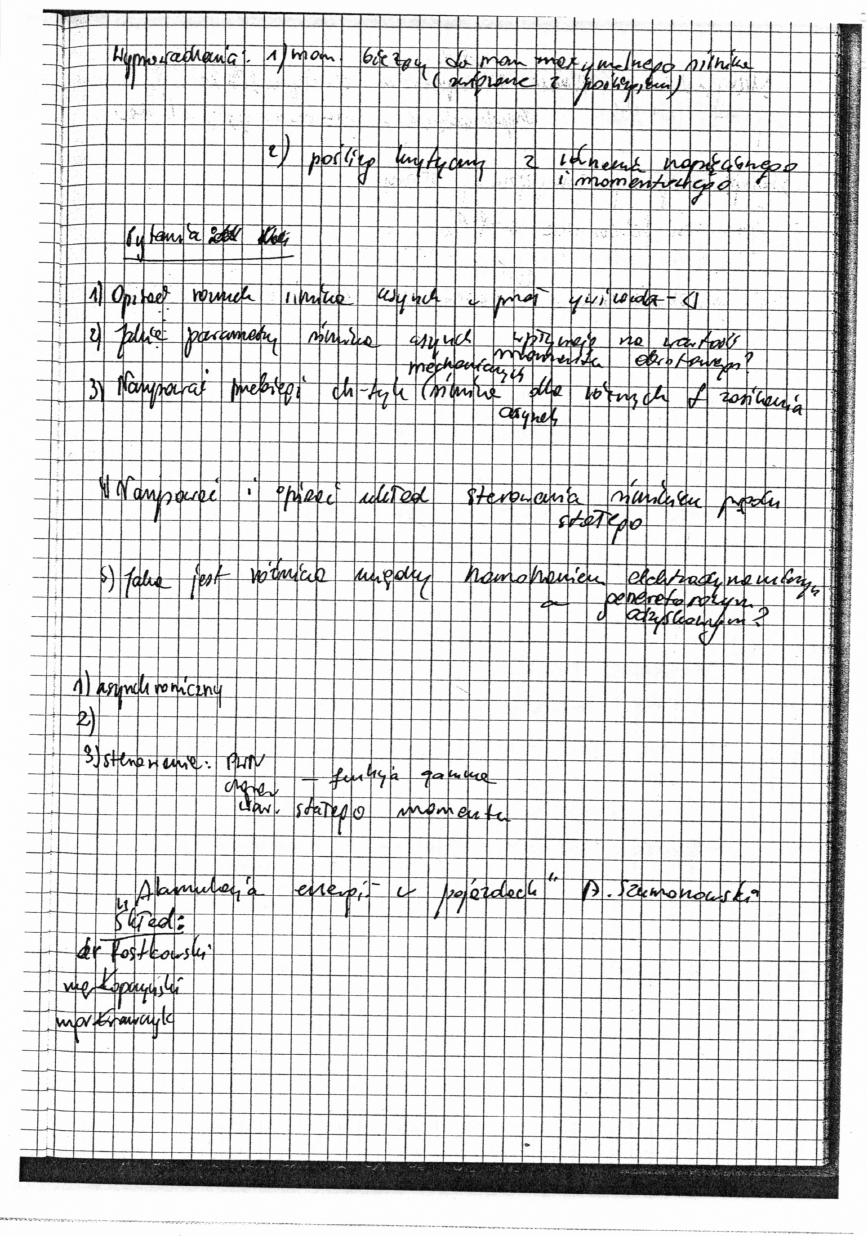 Wyprowadzenia: 1) mom. bieżący do mom maxymalnego silnika
( związane z poślizgiem)
2) poślizg krytyczny z równania napięciowego
i momentowego
Pytania
1) Opisać rozruch silnika asynch z przeł gwiazda-Δ
2) Jakie parametry silnika asynch wpływają na wartość
momentu obrotowego?
3) Narysować przebiegi ch-tyk mechanicznych silnika dla różnych f zasilania
asynch
4) Narysować i opisać układ sterowania silnikiem prądu
stałego
5) Jaka jest różnica między hamowaniem elektrodynamicznym
a generatorowym
odzyskowym?
1) asynchroniczny
2)
3) sterowanie: PWN
— funkcja gamma
stałego momentu
"Akumulacja energii w pojazdach" A. Szumanowski
Skład:
dr Kostkowski
mgr Kopczyński
mgr Krawczyk